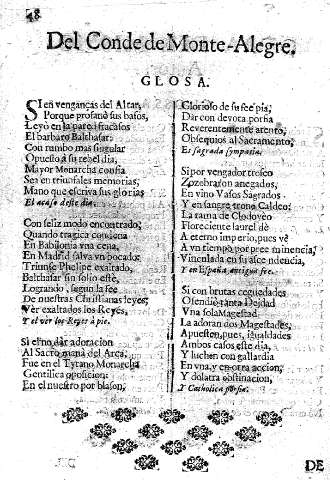 48
Del Conde de Monte-Alegre.
GLOSA.
SI en venganças del Altar,
Porque profanò sus basos,
Leyò en la pared fracasos
El barbaro Balthasar:
Con rumbo mas singular
Opuesto à su rebel dia,
Mayor Monarcha confia
Sea en triunfales memorias,
Mano que escriva sus glorias
El acaso deste dia.
Con feliz modo encontrado,
Quando tragica condena
En Babilonia vna cena,
En Madrid salva vn bocado:
Triunfe Phelipe exaltado,
Balthasar sin solio estè,
Logrando, segun la fee
De nuestras Christianas leyes,
Ver exaltados los Reyes,
Y el ver los Reyes à pie.
Si el no dàr adoracion
Al Sacro manà del Arca,
Fue en el Tyrano Monarcha
Gentilica oposicion:
En el nuestro por blason,
Glorioso de su fee pia,
Dàr con devota porfia
Reverentemente atento,
Obsequios al Sacramento,
Es sagrada sympatia.
Si por vengador trofeo
Zozobraron anegados,
En vino Vasos Sagrados
Y en sangre trono Caldeo:
La rama de Clodoveo
Floreciente laurel dè
A eterno imperio, pues vè
A vn tiempo por preeminencia,
Vinculada en su ascendencia,
Y en España antigua fee.
Si con brutas ceguedades
Ofendiò tanta Deidad
Vna sola Magestad,
La adoran dos Magestades,
Apuesten, pues, igualdades
Ambos casos este dia,
Y luchen con gallardia
En vna, y en otra accion,
Y dolatra obstinacion,
Y Catholica porfia.
DE